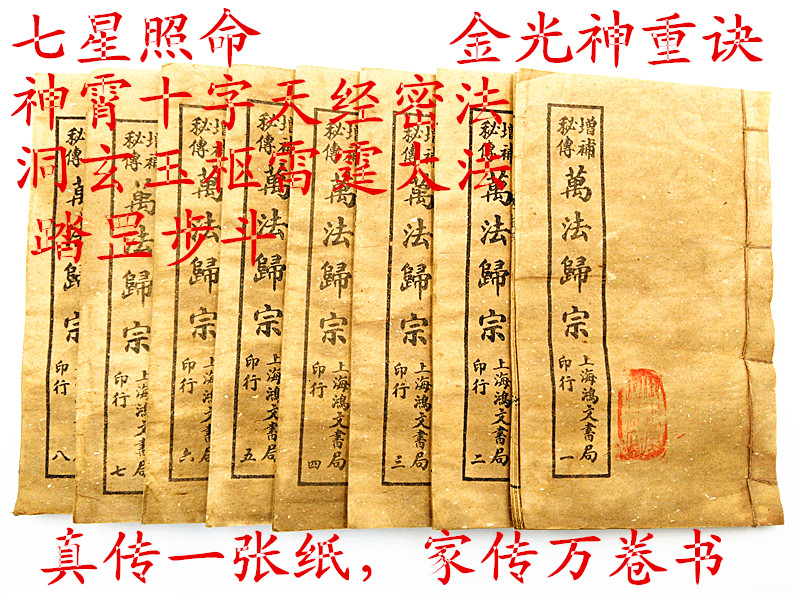 七星照命
金光神重诀
神霄十字天经密法
洞玄玉枢雷霆大法
踏罡步斗
增補
秘傳
萬法歸宗
上海鴻文書局
印行
一
增補
秘傳
萬法歸宗
上海鴻文書局
印行
二
增補
秘傳
萬法歸宗
上海鴻文書局
印行
三
增補
秘傳
萬法歸宗
上海鴻文書局
印行
四
增補
秘傳
萬法歸宗
上海鴻文書局
印行
五
增補
秘傳
萬法歸宗
上海鴻文書局
印行
六
秘傳
萬法歸宗
印行
七
秘傳
萬法歸宗
印行
八
真传一张纸，家传万卷书